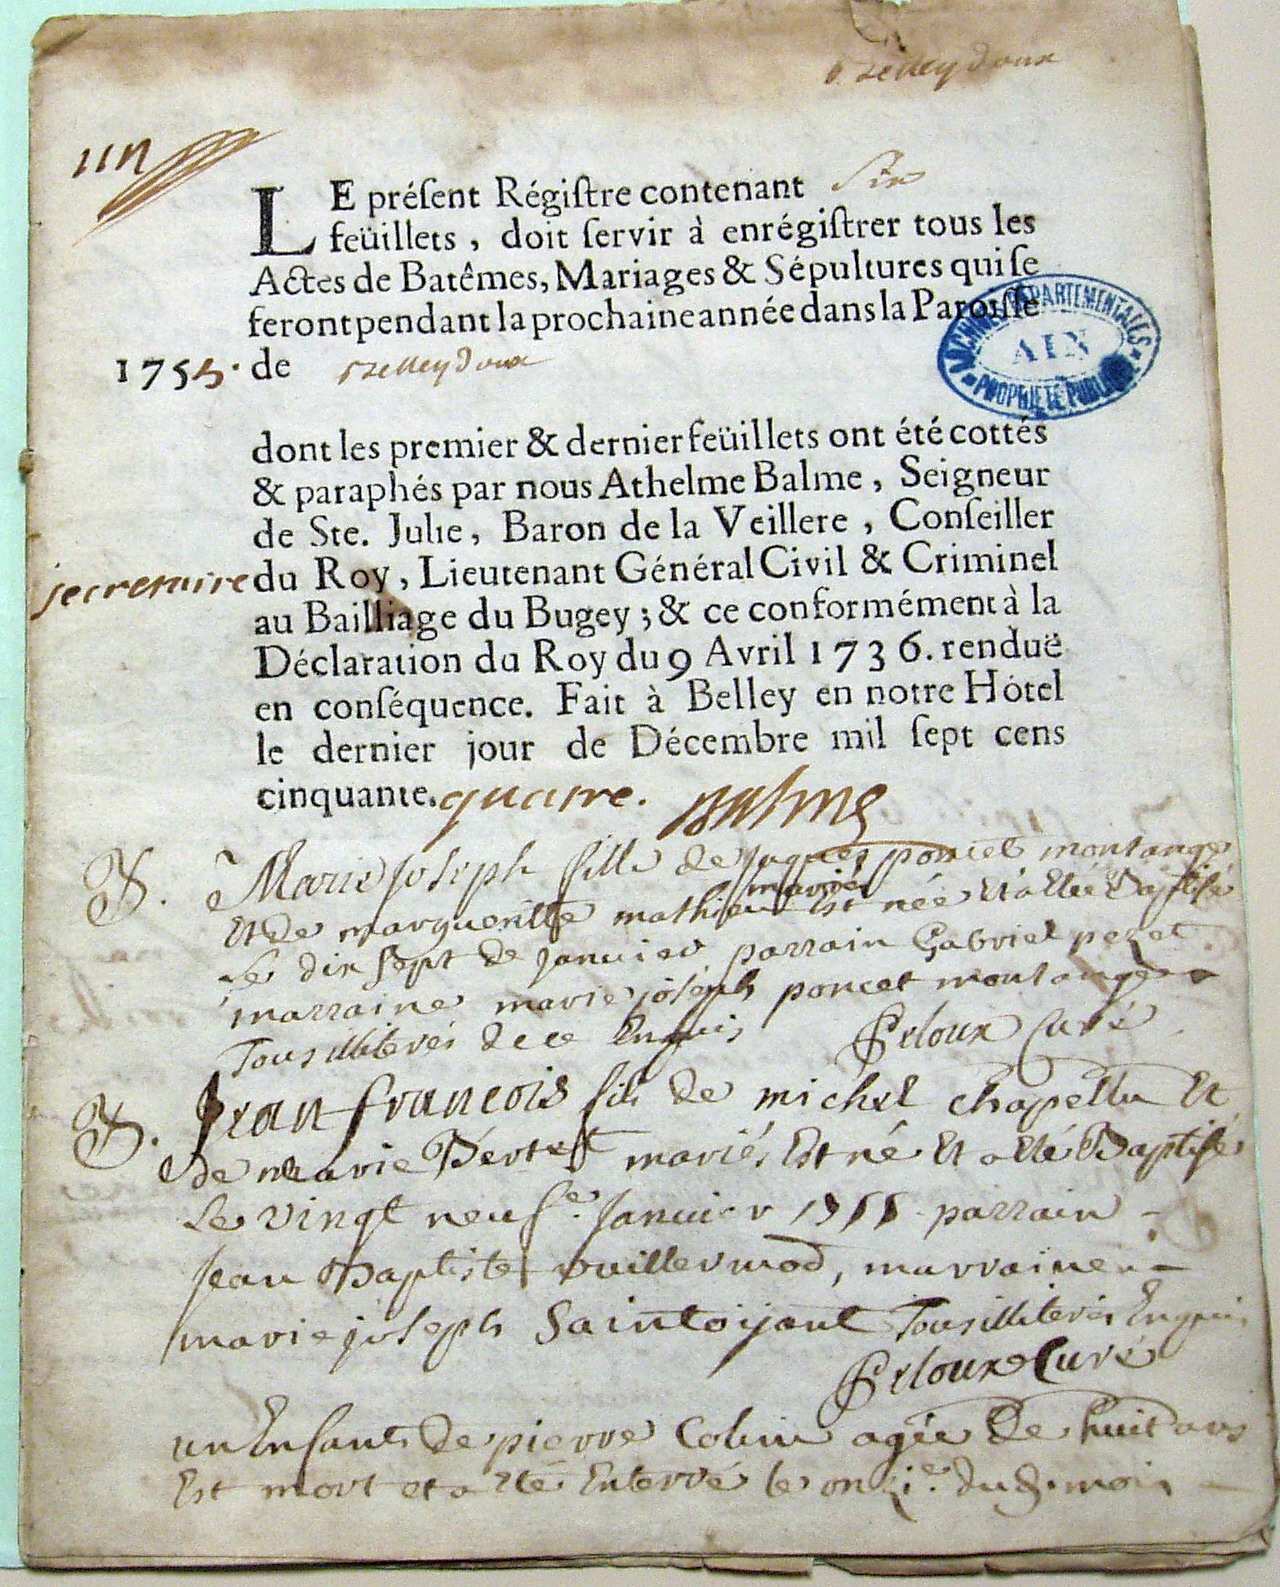 Belleydoux
un
LE préſent Régiſtre contenant Six
feüillets, doit ſervir à enrégiſtrer tous les
Actes de Batêmes, Mariages & Sépultures qui ſe
feront pendant la prochaine année dans la Paroiſſe
1755. de Belleydoux
ARCHIVES DÉPARTEMENTALES
AIN
PROPRIÉTÉ PUBLIQUE
dont les premier & dernier feüillets ont été cottés
& paraphés par nous Athelme Balme, Seigneur
de Ste. Julie, Baron de la Veillere, Conſeiller
secretaire du Roy, Lieutenant Général Civil & Criminel
au Bailliage du Bugey; & ce conformément à la
Déclaration du Roy du 9 Avril 1736. renduë
en conſéquence. Fait à Belley en notre Hôtel
le dernier jour de Décembre mil ſept cens
cinquante. quatre. Balme
B. Marie joseph fille de jaques poncet montange
mariés
Et de margueritte mathieu Est née Et a Eté Baptisée
le dix sept de janvier parrain Gabriel perret
marraine marie joseph poncet montange
Tous illiterés de ce Enquis Peloux Curé
B. Jean francois fils de michel chapellu Et
de marie Pertest mariés Est né Et a Eté Baptisé
Le vingt neufe. Janvier 1755 parrain
Jean Baptiste vuillermod, marraine
marie joseph Saintoijant Tous illiterés Enquis
Peloux Curé
un Enfant de pierre Colin agée De huit ans
Est mort et a Eté Enterré le onzie. du d. mois